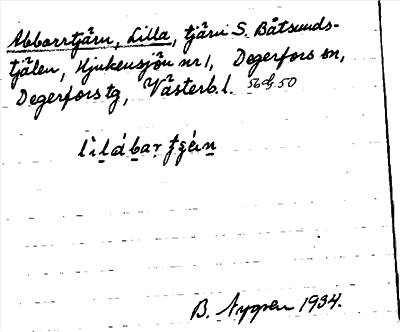 Abborrtjärn, Lilla, tjärn S. Båtsunds-
tjälen, Hjukensjön nr 1, Degerfors sn,
Degerfors tg, Västerb. l. 56 G. 50
B. Nygren 1934.